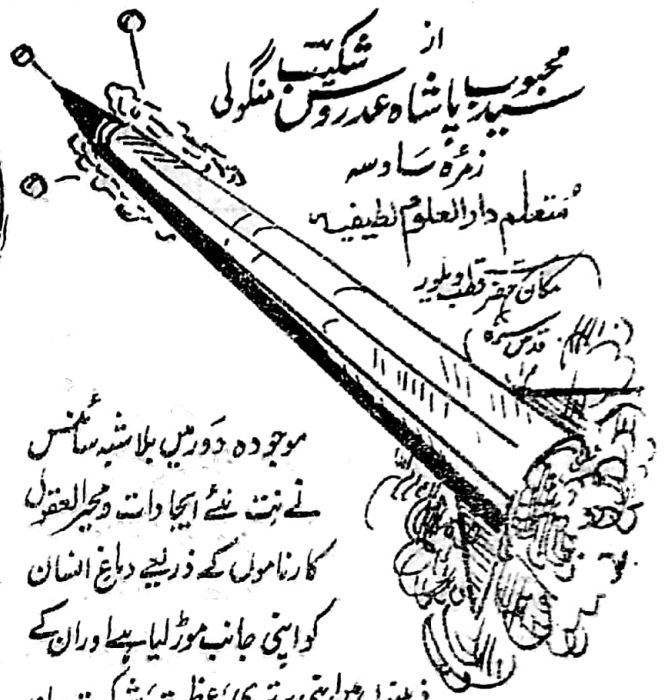 از
محبوب پاشاہ شکیب
سید عمدروس منگولی
زمرۂ سادسہ
متعلم دارالعلوم لطیفیہ
مکان حضرت قطب ویلور
قدس سرہ
موجودہ دور میں بلا شبہ سائنس
نے نت نئے ایجادات و محیر العقول
کارناموں کے ذریعے دماغ انسان
کو اپنی جانب موڑ لیا ہے اور ان کے